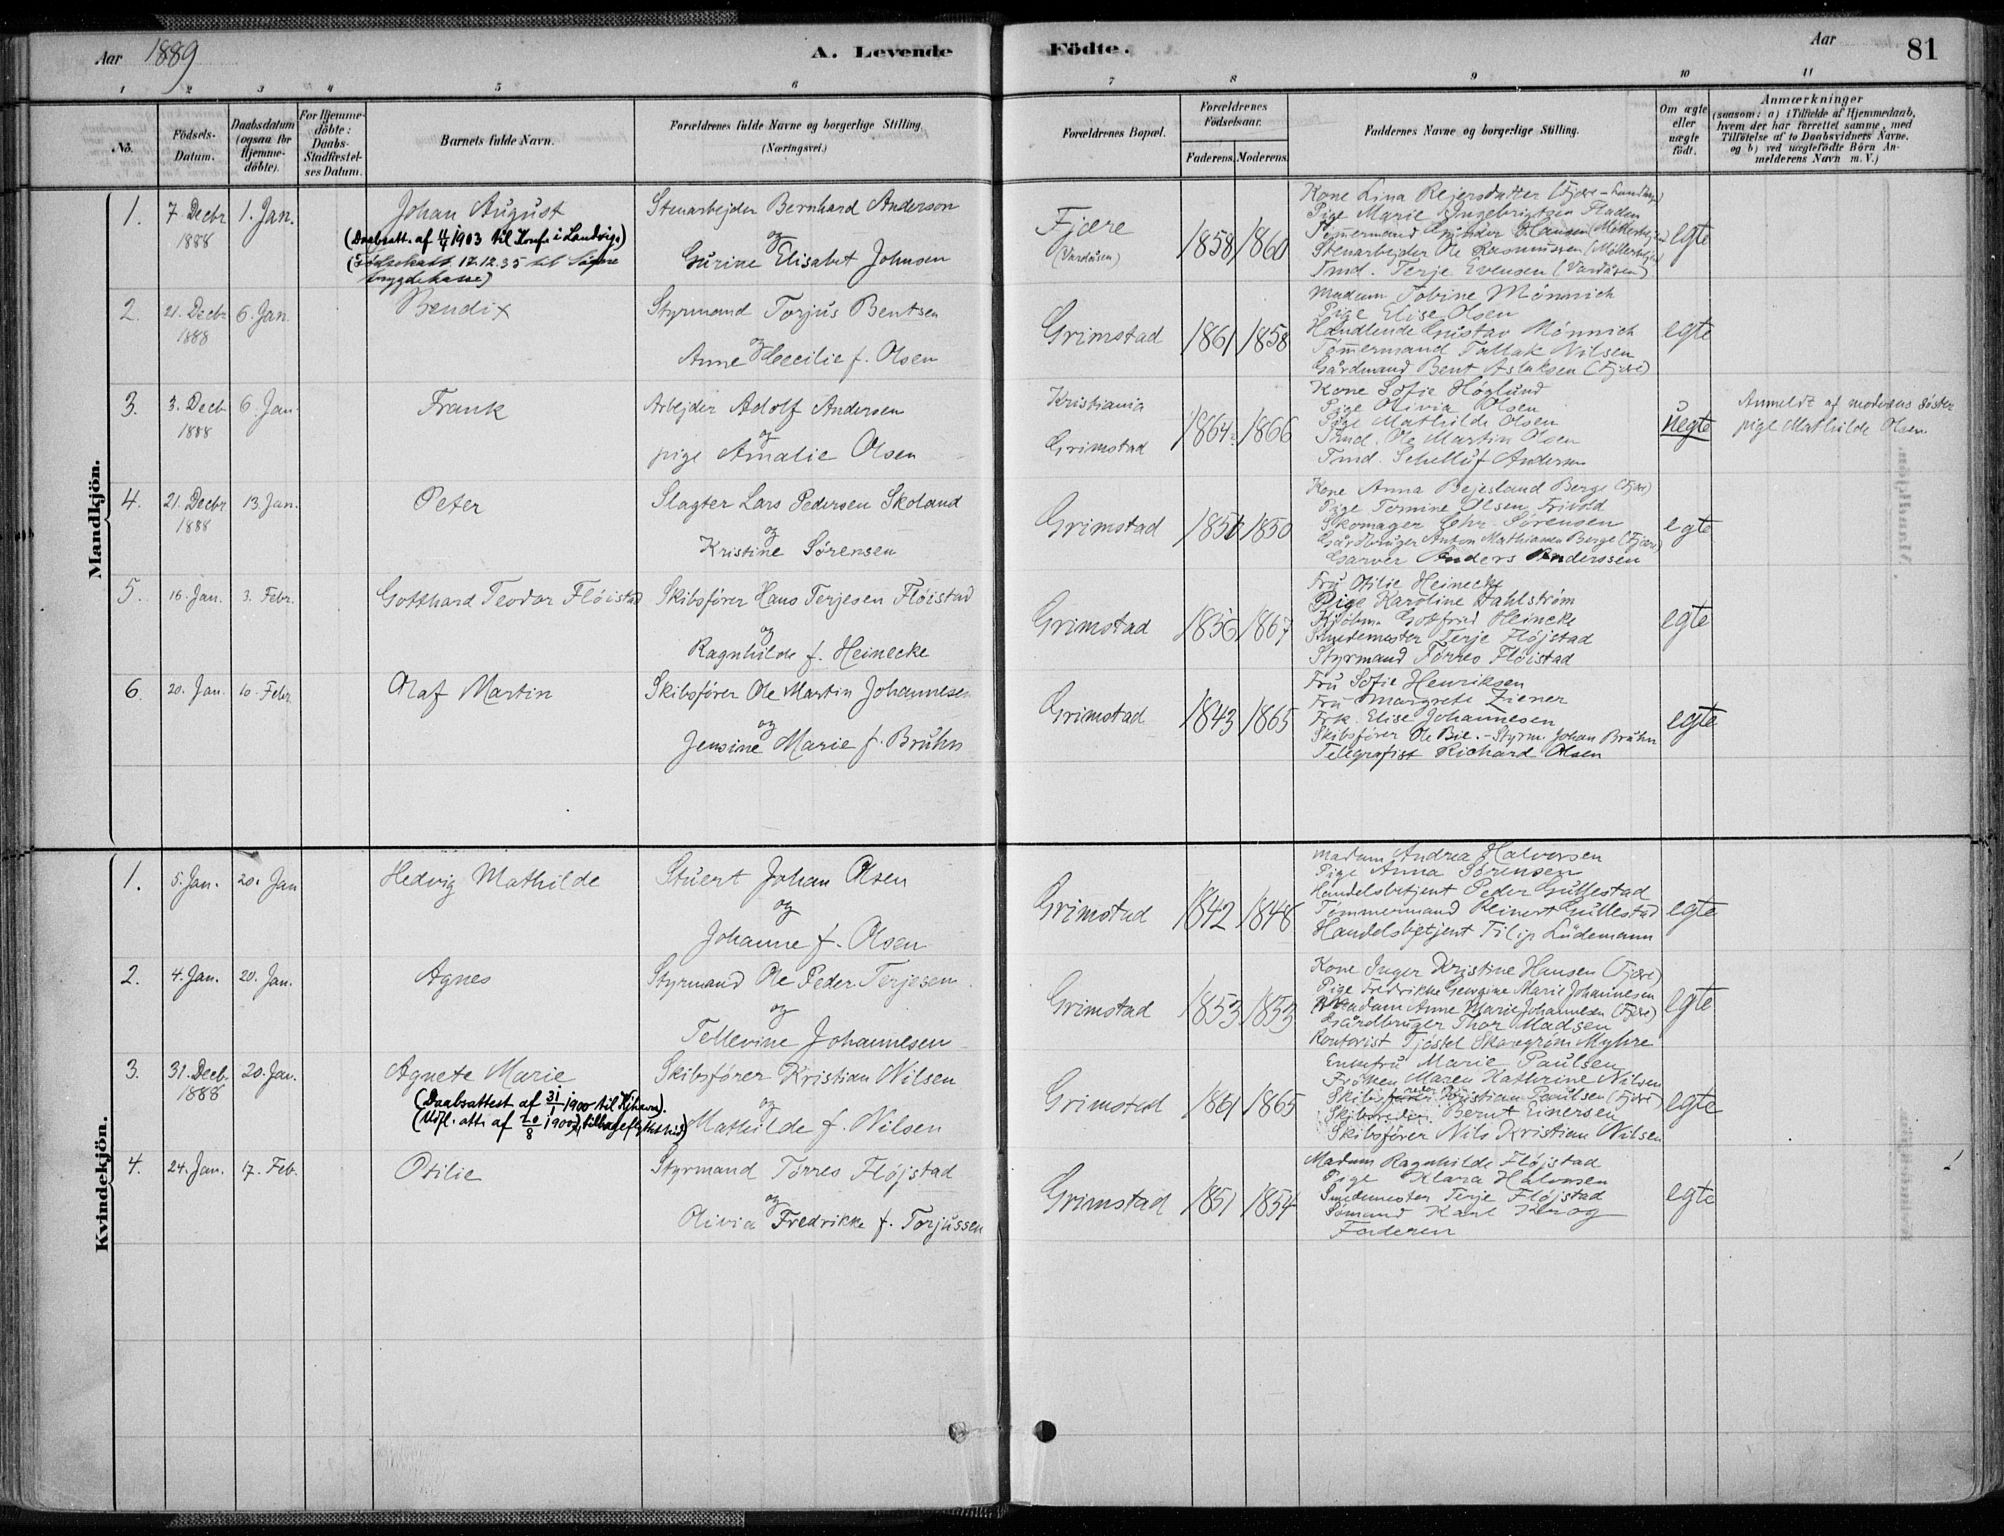 Aar 1889
A. Levende
Födte.
Aar
81
1 2 3 4 5 6 7 8 9 10 11
No.
Födsels-Datum.
Daabsdatum (ogsaa for Hjemme-döbte).
For Hjemme-döbte: Daabs-Stadfæstel-ses Datum.
Barnets fulde Navn.
Forældrenes fulde Navne og borgerlige Stilling. (Næringsvei.)
Forældrenes Bopæl.
Forældrenes Födselsaar.
Faderens. Moderens.
Faddernes Navne og borgerlige Stilling.
Om ægte eller uægte födt.
Anmærkninger
(saasom: a) i Tilfælde af Hjemmedaab,
hvem der har forrettet samme, med
Tilföielse af to Daabsvidners Navne.
og b) ved uægtefödte Börn An-
melderens Navn m. V.)
Mandkjön.
1. 7. Decbr 1888 1. Jan.
Johan August
(Daabsatt. af 1903 til Konf. i Landvig.)
17.12.35 til Søgne
trygdekasse)
Stenarbejder Bernhard Anderson
og
Gurine Elisabet Johnsen
Fjære
(Vardåsen)
1858 1860
Kone Lina Rejersdatter (Fjære-Landvig)
Pige Marie Ingebrigtsen Fladen
Tømmermand Gunder Hansen
Stenarbejder Ole Rasmussen
Tmd. Terje Evensen (Vardåsen)
egte
2. 21. Decbr 1888 6. Jan.
Bendix
Styrmand Torjus Bentsen
og
Anne Cecilie f. Olsen
Grimstad
1861 1858
Madam Tobine Mönnich
Pige Elise Olsen
Handlende Gustav Mönnich
Tømmermand Tallak Nilsen
Gårdmand Bent Aslaksen (Fjære)
egte
3. 3. Decb 1888 6. Jan.
Frank
Arbejder Adolf Andersen
og
pige Amalie Olsen
Kristiania
Grimstad
1864 1866
Kone Sofie Höglund
Pige Olivia Olsen
Pige Mathilde Olsen
Tmd. Ole Martin Olsen
Tmd. Andersen
uegte
Anmeldt af moderens söster
pige Mathilde Olsen
4. 21. Decbr 1888 13. Jan.
Peter
Slagter Lars Pedersen Skoland
og
Kristine Sørensen
Grimstad
1851 1850
Kone Anna Bejesland Berge (Fjære)
Pige Tomine Olsen Frivold
Skomager Chr Sørensen
Gårdbruger Anton Mathiasen Berge (Fjære)
Garver Anders Anderssen
egte
5. 16. Jan. 3. Febr.
Gotthard Teodor Flöistad
Skibsfører Hans Terjesen Flöistad
og
Ragnhilde f. Heinecke
Grimstad
1856 1867
Fru Otilie Heinecke
Pige Karoline Dahlström
Kjöbm. Gotfried Heincke
Smedemester Terje Flöjstad
Styrmand Tørres Flöistad
egte
6. 20. Jan. 10. Febr.
Olaf Martin
Skibsfører Ole Martin Johannesen
og
Jensine Marie f. Bruhn
Grimstad
1843 1865
Fru Sofie Henriksen
Fru Margrete Ziener
Frk. Elise Johannesen
Skibsfører Ole Bie. - Styrm. Johan Bruhn
Telegrafist Richard Olsen
egte
Kvindekjön.
1. 5. Jan. 20. Jan
Hedvig Mathilde
Stuert Johan Olsen
og
Johanne f. Olsen
Grimstad
1842 1848
Madam Andrea Halvorsen
Pige Anna Sörensen
Handelsbetjent Peder Gullestad
Tømmermand Reinert Gullestad
Handelsbetjent Filip Lüdemann
egte
2. 4. Jan. 20. Jan.
Agnes
Styrmand Ole Peder Terjesen
og
Tellevine Johannesen
Grimstad
1853 1853
Kone Inger Kristine Hansen (Fjære)
Pige Fredrikke Georgine Marie Johannesen
Madam Anne Marie Johannesen (Fjære)
Gårdbruger Thor Madsen
Kontorist Tjöstel Skaregröm Myhre
egte
3. 31. Decb. 1888 20. Jan.
Agnete Marie
(Daabsattest af 31/1 1900 til Kjhavn).
(Udfl. att. af 20/8 1900, tilbageflyttet hid)
Skibsfører Kristian Nilsen
og
Mathilde f. Nilsen
Grimstad
1861 1865
Enkefru Marie Paulsen
Frøken Maren Kathrine Nilsen
Kristian Paulsen (Fjære)
Skibsreder Bernt Einersen
Skibsfører Nils Kristian Nilsen
egte
4. 24. Jan. 17. Feb.
Otilie
Styrmand Törres Flöjstad
og
Olivia Fredrikke f. Torjussen
Grimstad
1851 1854
Madam Ragnhilde Flöjstad
Pige Klara Halvorsen
Smedemester Terje Flöjstad
Sømand Karl Krog
Faderen
egte